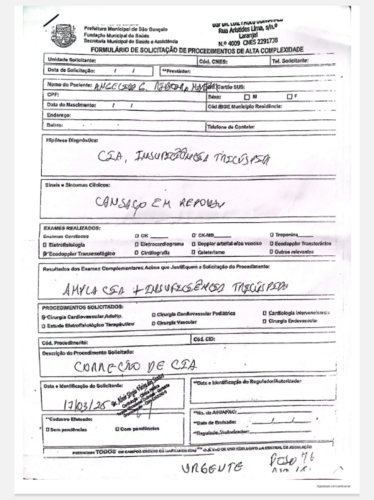 Prefeitura Municipal de São Gonçalo
Fundação Municipal de Saúde
Secretaria Municipal de Saúde e Assistência
Rua Aristides Lima, s/nº
Laranjal
N.º 4009 CNES 2291738
FORMULÁRIO DE SOLICITAÇÃO DE PROCEDIMENTOS DE ALTA COMPLEXIDADE
Unidade Solicitante: Cód. CNES: Tel. Solicitante:
Data da Solicitação: / / **Prestador:
Nome do Paciente: Cartão SUS:
CPF: Sexo: □ M □ F
Data do Nascimento: / / Cód IBGE Município Residência:
Endereço:
Bairro: Telefone de Contato:
Hipótese Diagnóstica:
CIA, INSUFICIÊNCIA TRICÚSPIDE
Sinais e Sintomas Clínicos:
CANSAÇO EM REPOUSO
EXAMES REALIZADOS:
□ CK □ CK-MB □ Troponina
□ Eletrofisiologia □ Eletrocardiograma □ Doppler arterial e/ou venoso □ Ecodoppler Transtorácico
Ecodoppler Transesofágico □ Cintilografia □ Cateterismo □ Outros relevantes
Resultados dos Exames Complementares Acima que Justifiquem a Solicitação do Procedimento:
AMPLA CIA + INSUFICIÊNCIA TRICÚSPIDE
PROCEDIMENTOS SOLICITADOS:
Cirurgia Cardiovascular Adulto □ Cirurgia Cardiovascular Pediátrica □ Cardiologia Intervencionista
□ Estudo Eletrofisiológico Terapêutico □ Cirurgia Vascular □ Cirurgia Endovascular
Cód. Procedimento: Cód. CID:
Descrição do Procedimento Solicitado:
CORREÇÃO DE CIA
Data e Identificação do Solicitante: **Data e Identificação do Regulador/Autorizador
17/03/25
**Cadastro Efetuado:
□ Sem pendências □ Com pendências
URGENTE
PESO 76